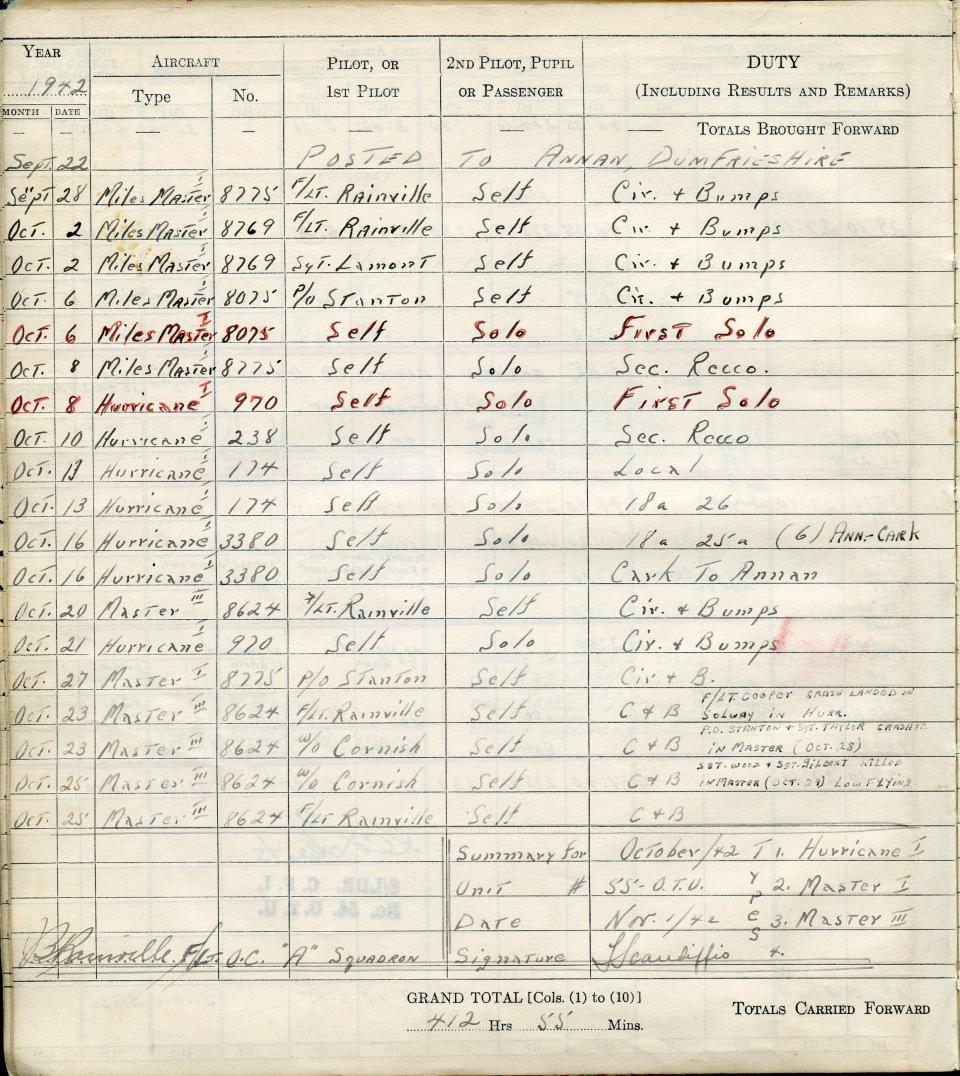 YEAR AIRCRAFT PILOT, OR 2ND PILOT, PUPIL DUTY
1942 Type No. 1ST PILOT OR PASSENGER (INCLUDING RESULTS AND REMARKS)
MONTH DATE
— — — — — — — TOTALS BROUGHT FORWARD
Sept. 22 POSTED TO ANNAN, DUMFRIESHIRE
Sept 28 Miles Master I 8775 F/LT. Rainville Self Cir. + Bumps
Oct. 2 Miles Master I 8769 F/LT. Rainville Self Cir. + Bumps
Oct. 2 Miles Master I 8769 Sgt. Lamont Self Cir. + Bumps
Oct. 6 Miles Master I 8075 P/O Stanton Self Cir. + Bumps
Oct. 6 Miles Master I 8075 Self Solo First Solo
Oct. 8 Miles Master I 8775 Self Solo Sec. Recco.
Oct. 8 Hurricane I 970 Self Solo First Solo
Oct. 10 Hurricane I 238 Self Solo Sec. Recco
Oct. 11 Hurricane I 174 Self Solo Local
Oct. 13 Hurricane I 174 Self Solo 18a 26
Oct. 16 Hurricane I 3380 Self Solo 18a 25a (6) ANN.-CARK
Oct. 16 Hurricane I 3380 Self Solo Cark To Annan
Oct. 20 Master III 8624 F/LT. Rainville Self Cir. + Bumps
Oct. 21 Hurricane I 970 Self Solo Cir. + Bumps
Oct. 27 Master I 8775 P/O Stanton Self Cir + B.
Oct. 23 Master III 8624 F/LT. Rainville Self C + B F/LT. COOPER CRASH LANDED IN
SOLWAY IN HURR.
Oct. 23 Master III 8624 W/O Cornish Self C + B P.O. STANTON + SGT. TAYLER CRASHED
IN MASTER (OCT. 28)
Oct. 25 Master III 8624 W/O Cornish Self C + B SGT. WOOD + SGT. GILBERT KILLED
IN MASTER (OCT. 29) LOW FLYING
Oct. 25 Master III 8624 F/LT Rainville Self C + B
Summary for October/42 Types 1. Hurricane I
Unit # 55-O.T.U. 2. Master I
Date Nov. 1/42 3. Master III
Rainville. F/LT. O.C. "A" SQUADRON Signature Scandiffio 4.
GRAND TOTAL [Cols. (1) to (10)] TOTALS CARRIED FORWARD
412 Hrs 55 Mins.